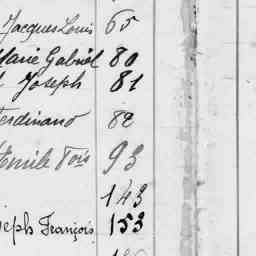 Jacques Louis 65
Marie Gabriel 80
Joseph 81
Ferdinand 82
Emile Fois 93
143
Joseph François 153